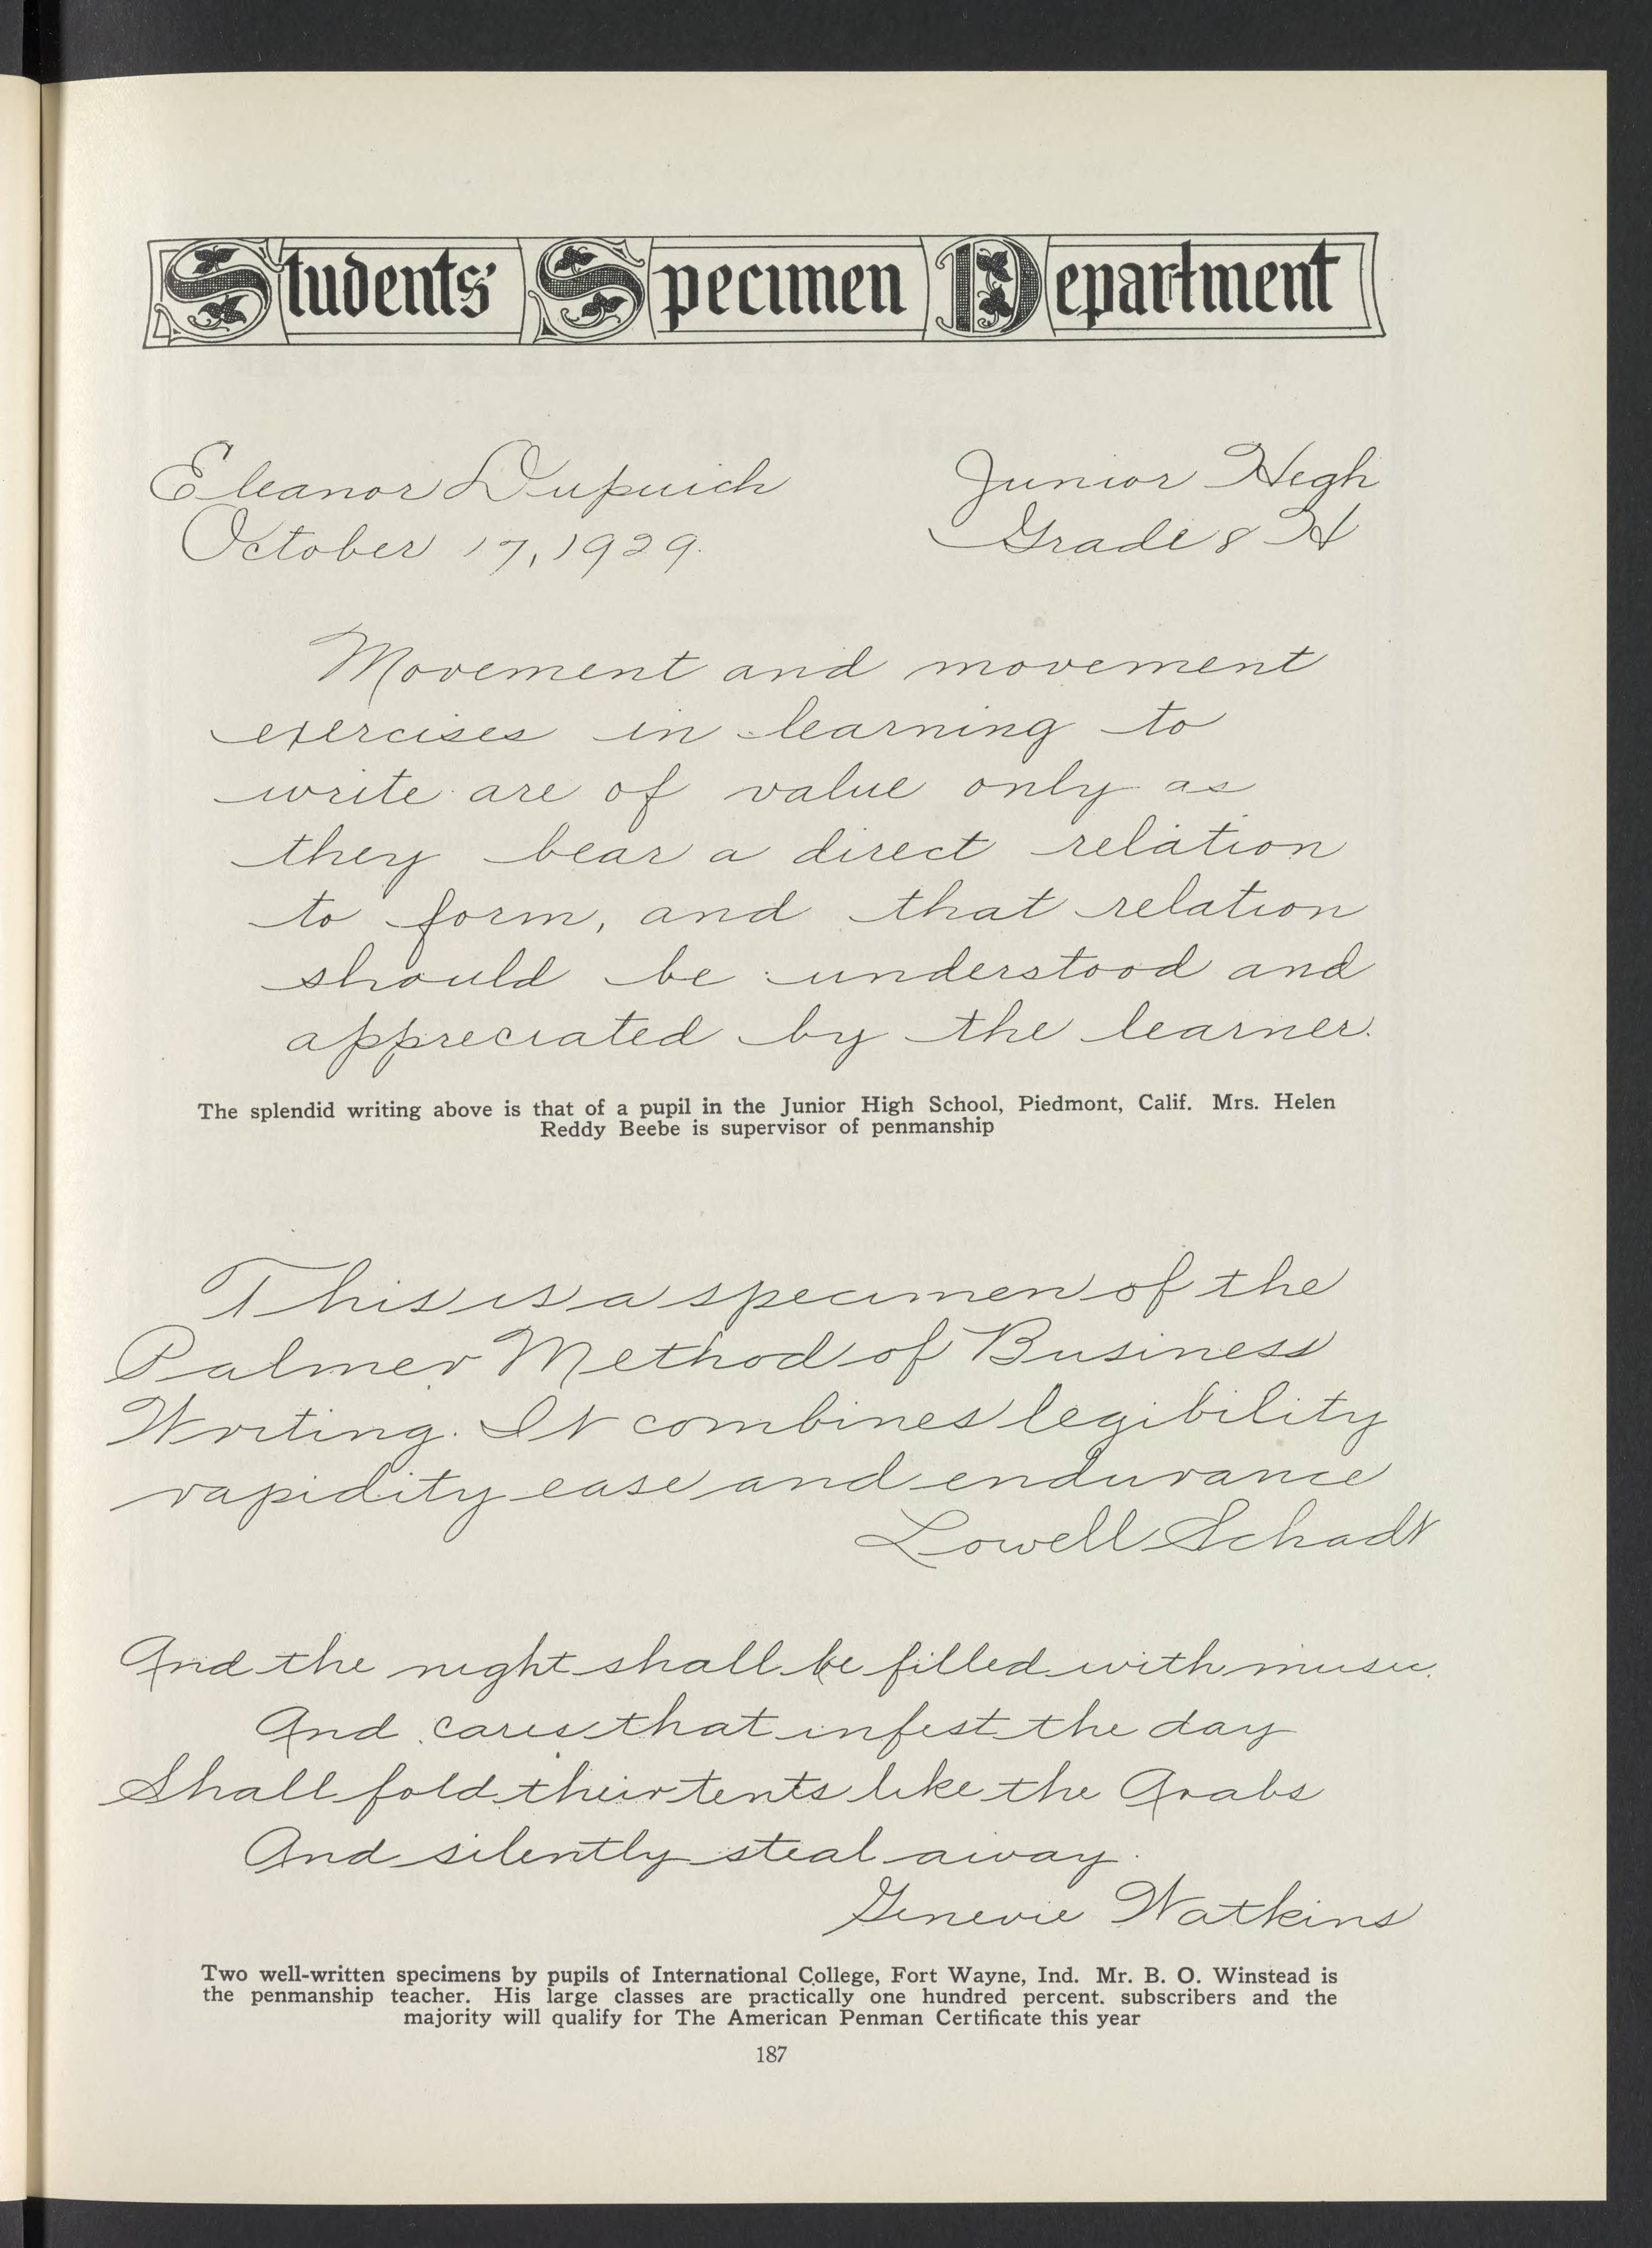 Students' Specimen Department
Eleanor Dupuich Junior High
October 17, 1929. Grade 8 H
Movement and movement
exercises in learning to
write are of value only as
they bear a direct relation
to form, and that relation
should be understood and
appreciated by the learner.
The splendid writing above is that of a pupil in the Junior High School, Piedmont, Calif. Mrs. Helen
Reddy Beebe is supervisor of penmanship
This is a specimen of the
Palmer Method of Business
Writing. It combines legibility
rapidity ease and endurance
Lowell Schadt
And the night shall be filled with music.
And cares that infest the day
Shall fold their tents like the Arabs
And silently steal away.
Genevie Watkins
Two well-written specimens by pupils of International College, Fort Wayne, Ind. Mr. B. O. Winstead is
the penmanship teacher. His large classes are practically one hundred percent. subscribers and the
majority will qualify for The American Penman Certificate this year
187